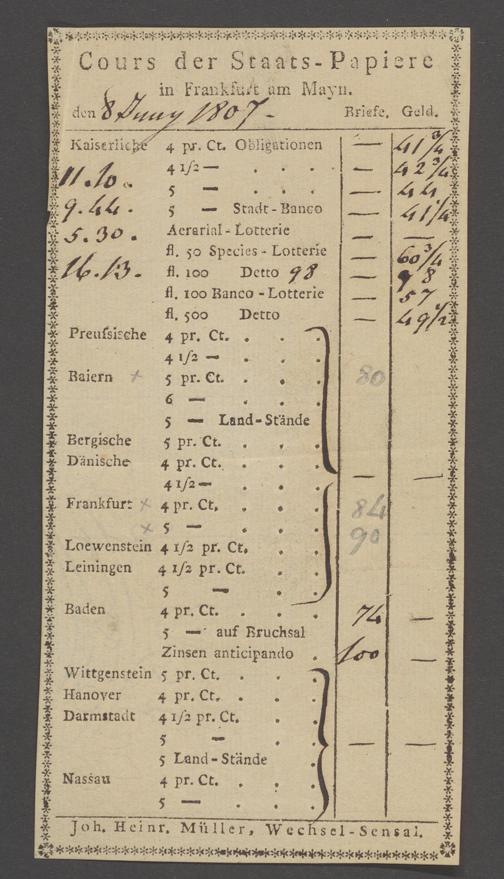 Cours der Staats-Papiere
in Frankfurt am Mayn.
den 8 Juny 1807. Briefe. Geld.
Kaiserliche 4 pr. Ct. Obligationen — 41 3/4
4 1/2 — . . . — 42 3/4
11.10. 5 — . . . — 44
9.44. 5 — Stadt-Banco — 41 1/4
5.30. Aerarial-Lotterie — —
fl. 50 Species-Lotterie — 60 3/4
16.13. fl. 100 Detto 98 — 98
fl. 100 Banco-Lotterie — 57
fl. 500 Detto — 49 1/2
Preussische 4 pr. Ct. . . .
4 1/2 — . . .
Baiern × 5 pr. Ct. . . . 80
6 — . . .
5 — Land-Stände
Bergische 5 pr. Ct. . . .
Dänische 4 pr. Ct. . . .
4 1/2 — . . . — —
Frankfurt × 4 pr. Ct. . . . 84
× 5 — . . . 90
Loewenstein 4 1/2 pr. Ct. . .
Leiningen 4 1/2 pr. Ct. . .
5 — . .
Baden 4 pr. Ct. . . . 74 —
5 — auf Bruchsal
Zinsen anticipando . 100 —
Wittgenstein 5 pr. Ct. . . .
Hanover 4 pr. Ct. . . .
Darmstadt 4 1/2 pr. Ct. . .
5 — . . — —
5 Land-Stände . .
Nassau 4 pr. Ct. . . .
5 — . . .
Joh. Heinr. Müller, Wechsel-Sensal.